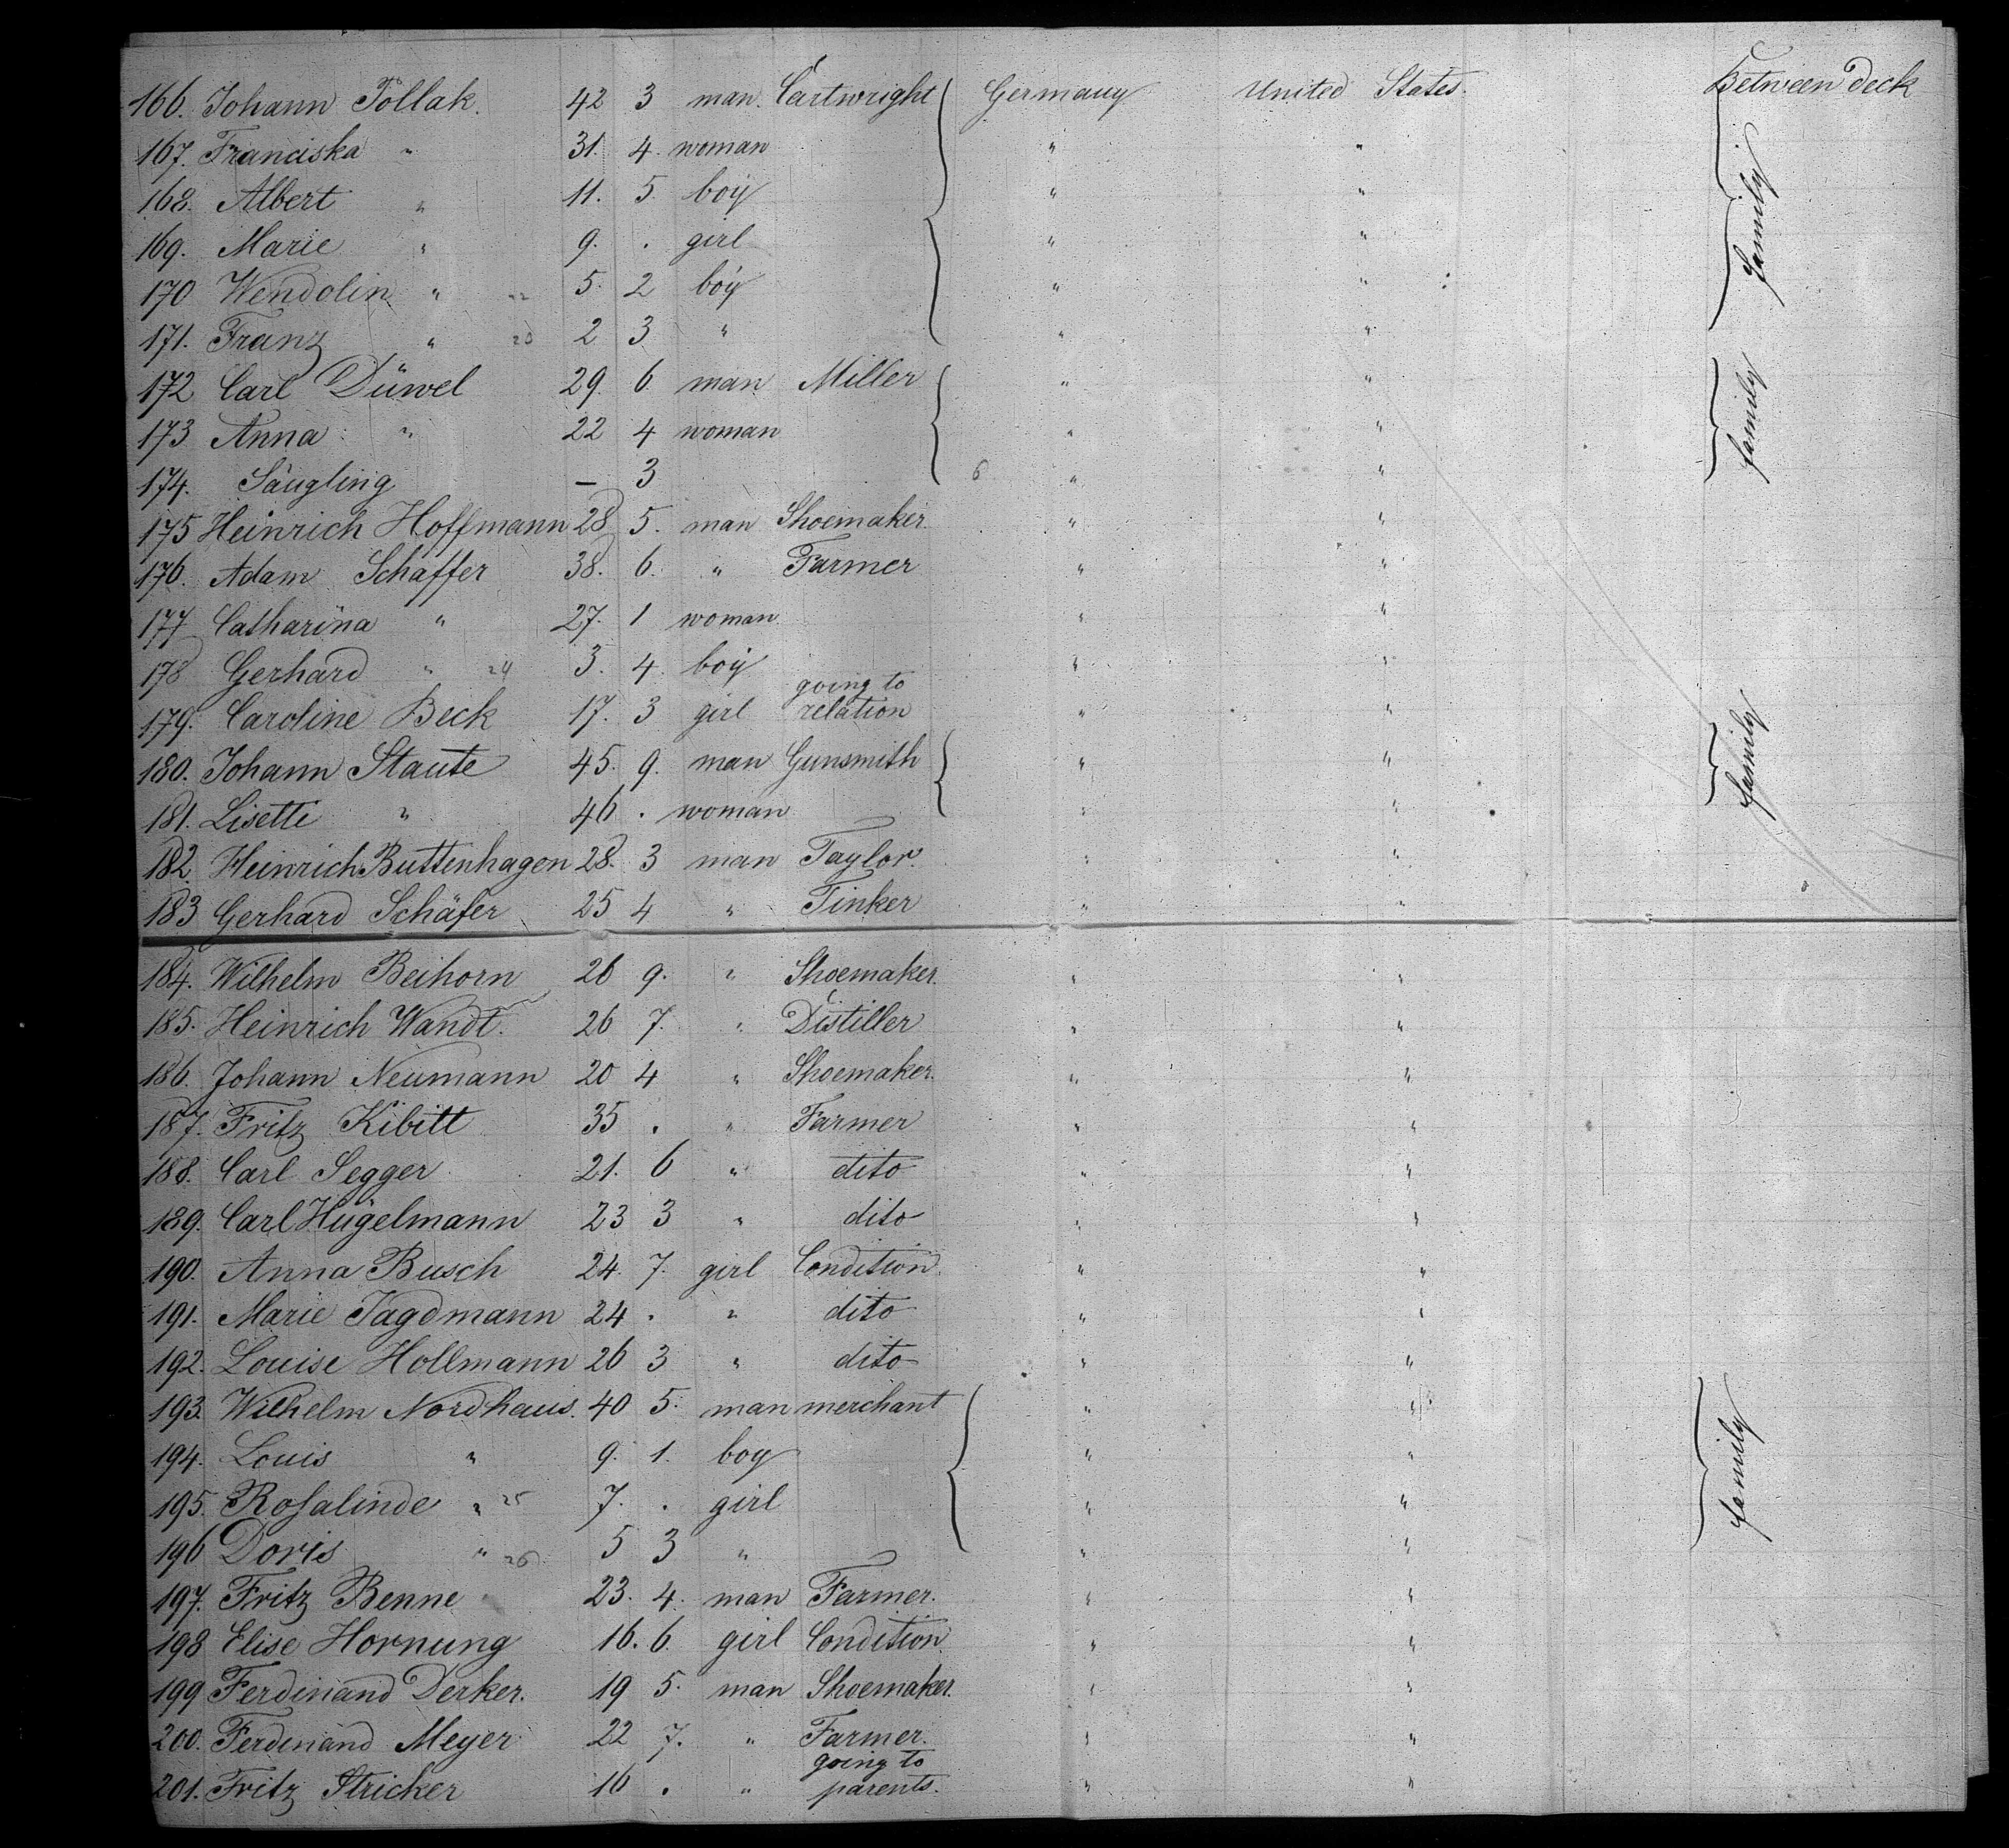 166. Johann Pollak. 42 3 man. Cartwright Germany United States. Between deck
167. Franciska " 31. 4. woman " "
168. Albert " 11. 5. boy " " family
169. Marie " 9. . girl " "
170 Wendolin " 22 5. 2 boy " "
171. Franz " 23 2 3 " " "
172 Carl Düwel 29. 6. man Miller " " family
173 Anna " 22 4 woman " "
174. Säugling — 3 6 " "
175 Heinrich Hoffmann 28 5. man Shoemaker. " "
176. Adam Schäffer 38. 6. " Farmer " "
177 Catharina " 27. 1 woman " "
178 Gerhard " 24 3. 4. boy " "
179. Caroline Beck 17. 3 girl going to relation " "
180. Johann Staute 45. 9. man Gunsmith " " family
181. Lisette " 46 . woman " "
182. Heinrich Buttenhagen 28. 3 man Taylor. " "
183 Gerhard Schäfer 25 4 " Tinker " "
184. Wilhelm Beihorn 26 9. " Shoemaker. " "
185. Heinrich Wandt. 26 7. " Distiller " "
186. Johann Neumann 20 4 " Shoemaker. " "
187. Fritz Kibitt 35 . " Farmer " "
188. Carl Segger 21. 6 " dito " "
189. Carl Hügelmann 23 3 " dito " "
190. Anna Busch 24. 7. girl Condition. " "
191. Marie Jagdmann 24 . " dito " "
192. Louise Hollmann 26 3 " dito " "
193. Wilhelm Nordhaus. 40 5. man merchant " "
194. Louis " 9. 1. boy " " family
195. Rosalinde " 25 7. . girl " "
196 Doris " 26 5 3 " " "
197. Fritz Benne 23. 4. man Farmer. " "
198 Elise Hornung 16. 6. girl Condition. " "
199 Ferdinand Derker. 19 5. man Shoemaker. " "
200. Ferdinand Meyer 22 7. " Farmer. " "
201. Fritz Stricker 16 . " going to parents. " "